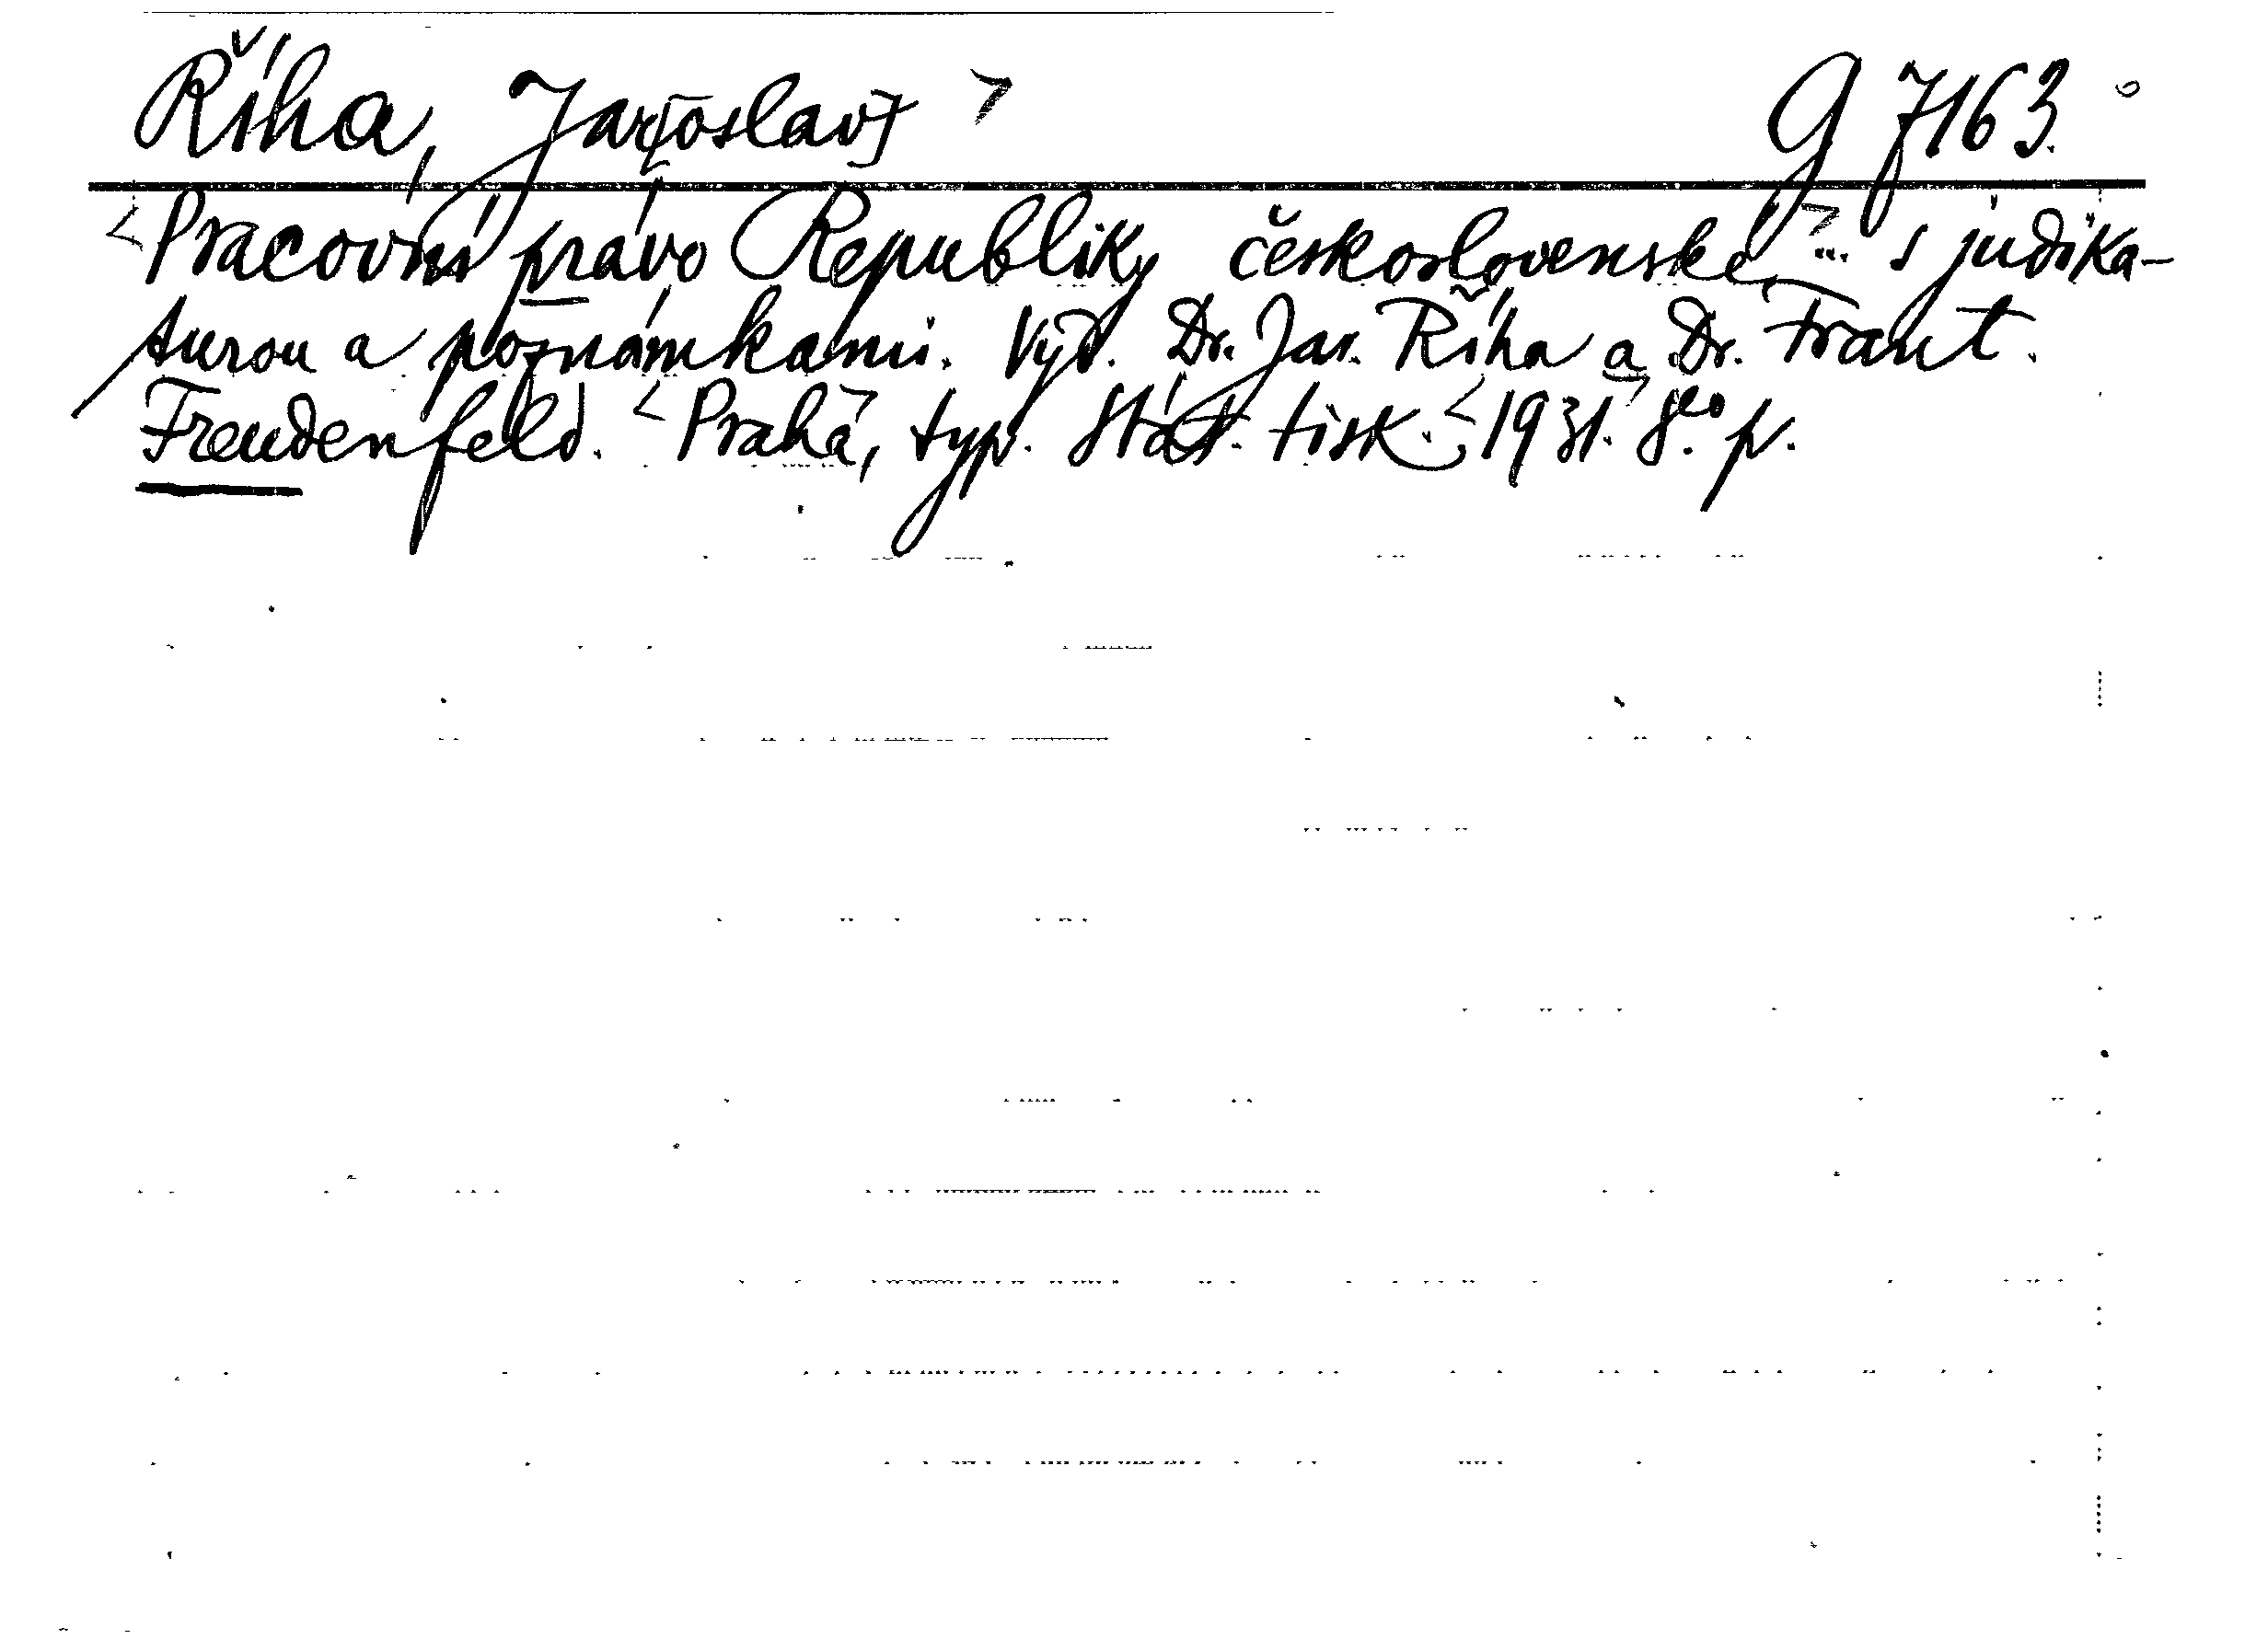 Říha, Jar[oslav] > G 7163.
<Pracovní právo Republiky československé,> ... s judika-
turou a poznámkami. Vyd. Dr. Jar. Říha a Dr. Frant.
Freudenfeld. <Praha>, typ. Stát. tisk. <1931.> 8.º p.